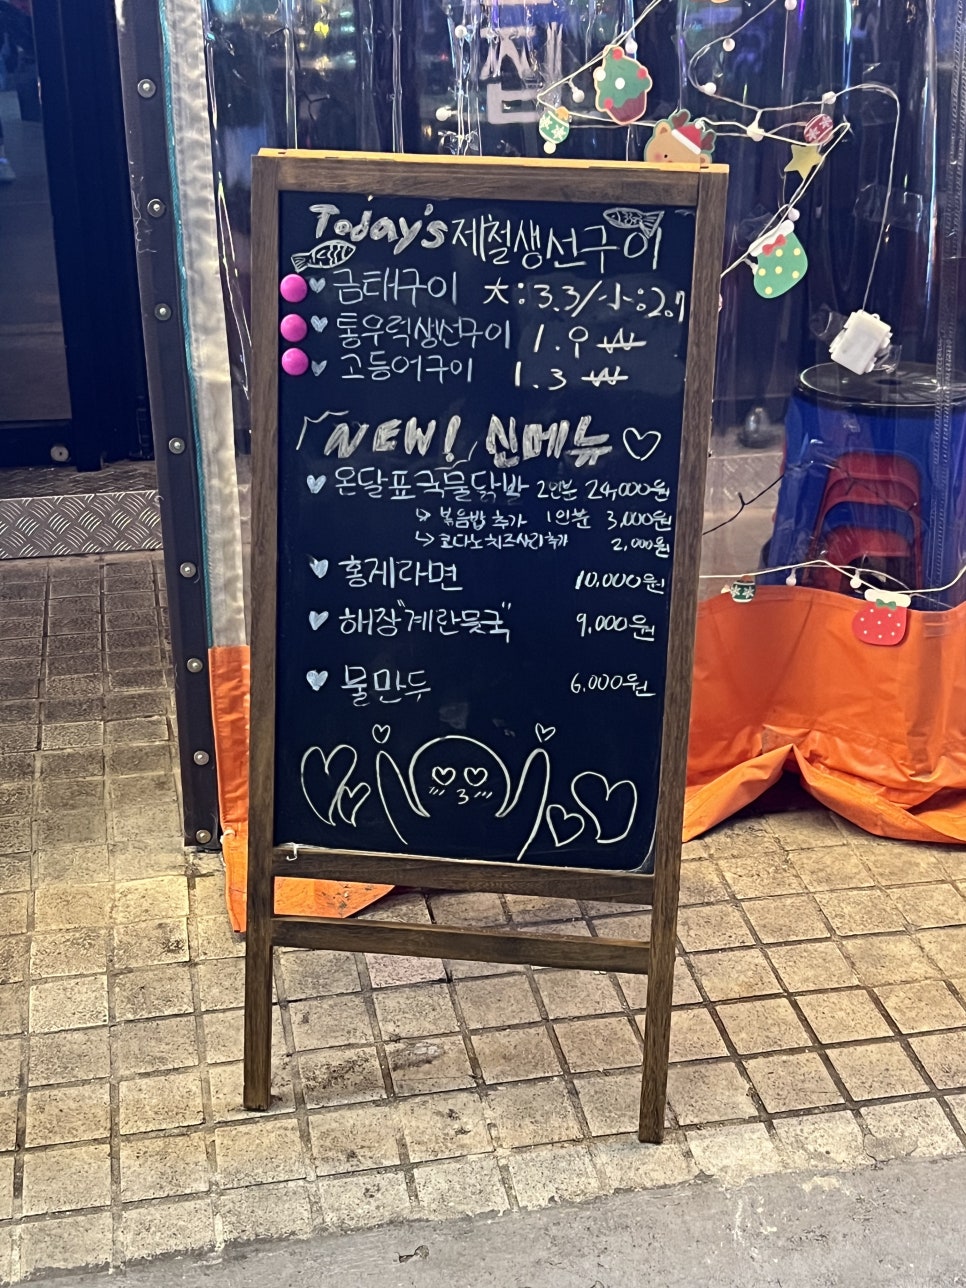 집
Today's 제철생선구이
금태구이 大:3.3/小:2.7
통우럭생선구이 1.9 ₩
고등어구이 1.3 ₩
NEW! 신메뉴
온달표국물닭발 2인분 24,000원
↳ 볶음밥 추가 1인분 3,000원
↳ 코다노치즈사리추가 2,000원
홍게라면 10,000원
해장"계란뭇국" 9,000원
물만두 6,000원